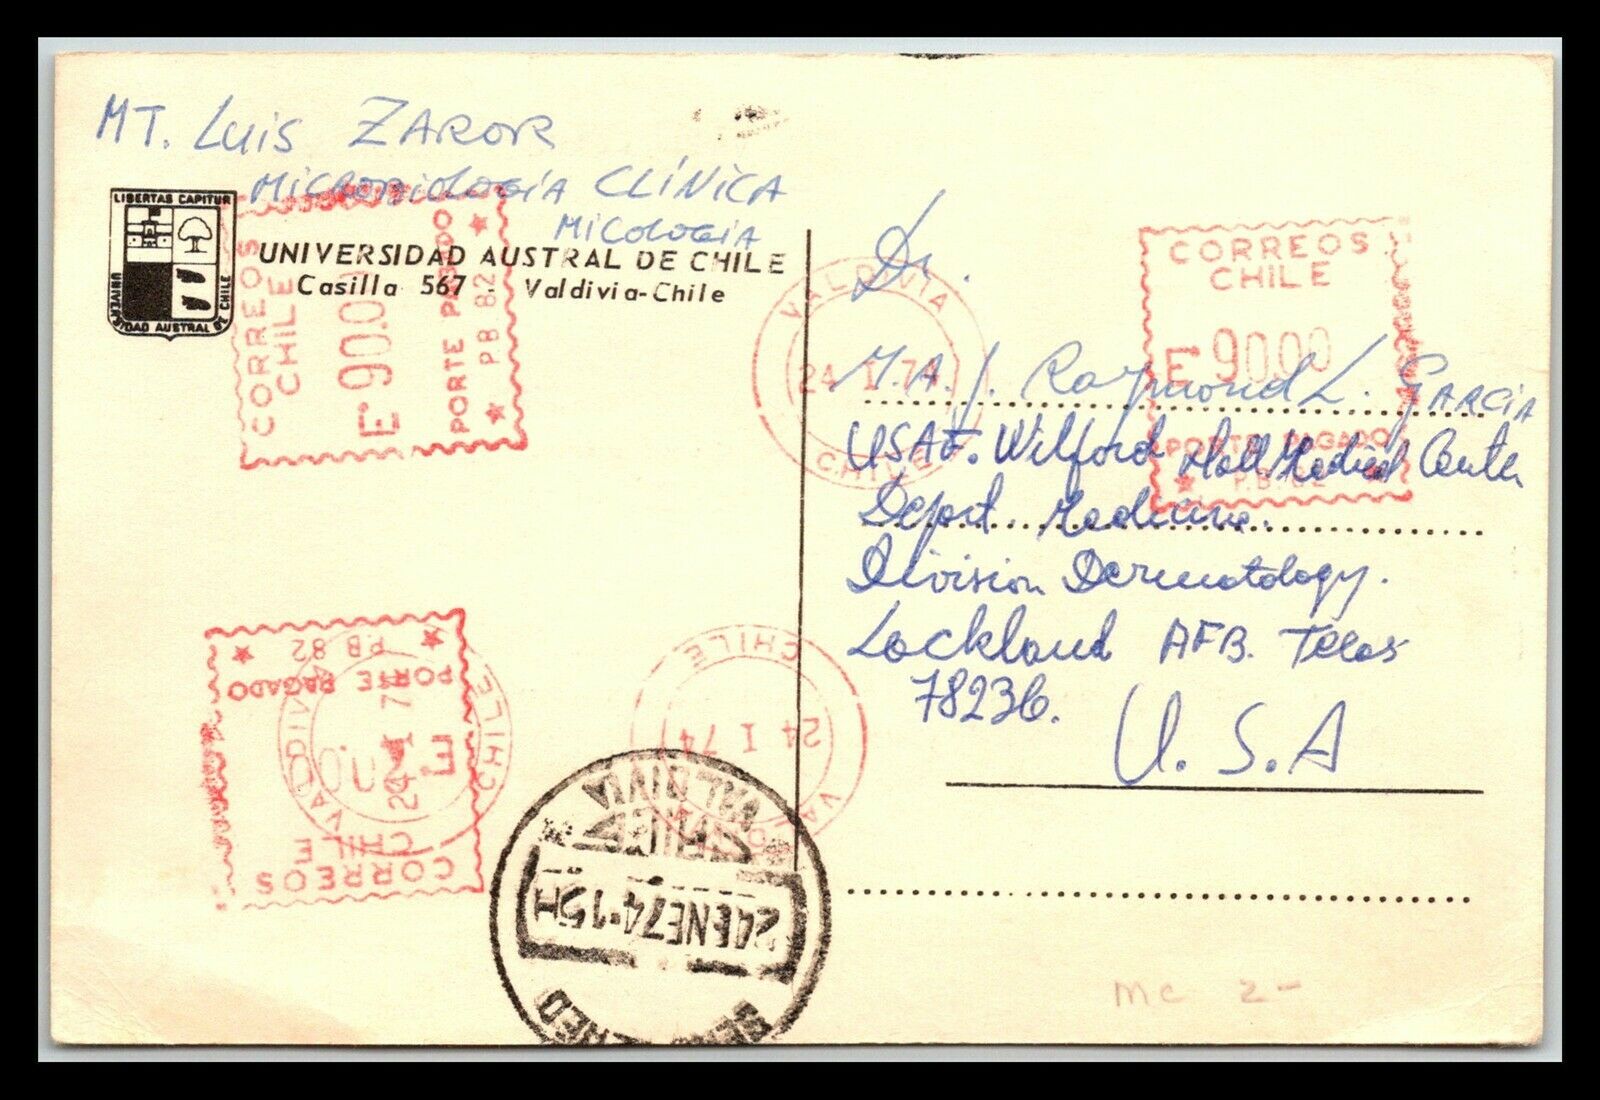 MT. Luis ZAROR
MICROBIOLOGÍA CLÍNICA
MICOLOGIA
LIBERTAS CAPITUR
UNIVERSIDAD AUSTRAL DE CHILE
UNIVERSIDAD AUSTRAL DE CHILE
Casilla 567 - Valdivia-Chile
CORREOS
CHILE
E° 90.0
PORTE PAGADO
PB 82
VALDIVIA
24 I 74
CHILE
CORREOS
CHILE
E° 90.00
PORTE PAGADO
P.B. 82
Dr.
M.A.J. Raymond L. GARCIA
USAF. Wilford Hall Medical Center
Depart. Medicine.
Division Dermatology.
Lackland AFB. Texas
78236.
U.S.A
CORREOS
CHILE
E°
PORTE PAGADO
P.B 82
VALDIVIA
24 I 74
CHILE
VALDIVIA
24 I 74
CHILE
VALDIVIA
CHILE
24ENE74·15H
MC 2-